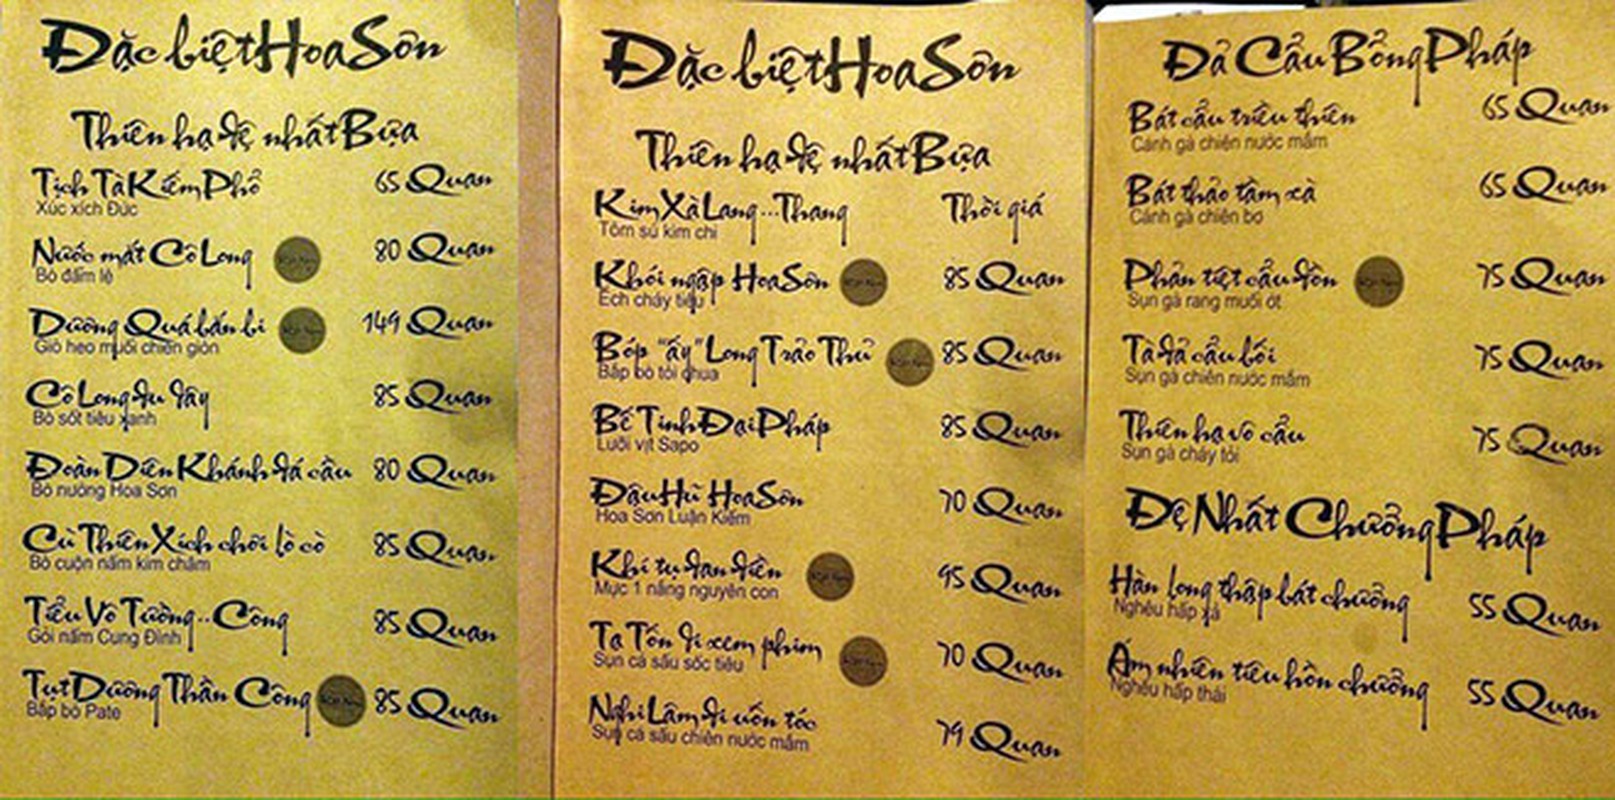 Đặc biệt Hoa Sơn
Thiên hạ đệ nhất Bựa
Tịch Tà Kiếm Phổ 65 Quan
Xúc xích Đức
Nước mắt Cô Long 80 Quan
Bò đẫm lệ
Dương Quá bắn bi 149 Quan
Giò heo muối chiên giòn
Cô Long đu dây 85 Quan
Bò sốt tiêu xanh
Đoàn Diên Khánh đá cầu 80 Quan
Bò nướng Hoa Sơn
Cù Thiên Xích chơi lò cò 85 Quan
Bò cuộn nấm kim châm
Tiểu Vô Tướng..Công 85 Quan
Gỏi nấm Cung Đình
Tụt Dương Thần Công 85 Quan
Bắp bò Pate
Đặc biệt Hoa Sơn
Thiên hạ đệ nhất Bựa
Kim Xà Lang...Thang Thời giá
Tôm sú kim chi
Khói ngập Hoa Sơn 85 Quan
Ếch cháy tiêu
Bóp "ấy" Long Trảo Thủ 85 Quan
Bắp bò tỏi chua
Bế Tinh Đại Pháp 85 Quan
Lưỡi vịt Sapo
Đậu Hũ Hoa Sơn 70 Quan
Hoa Sơn Luận Kiếm
Khí tụ đan điền 95 Quan
Mực 1 nắng nguyên con
Tạ Tốn đi xem phim 70 Quan
Sụn cá sấu sốc tiêu
Nghi Lâm đi uốn tóc 79 Quan
Sụn cá sấu chiên nước mắm
Đả Cẩu Bổng Pháp
Bát cẩu triều thiên 65 Quan
Cánh gà chiên nước mắm
Bát thảo tầm xà 65 Quan
Cánh gà chiên bơ
Phản tiệt cẩu đồn 75 Quan
Sụn gà rang muối ớt
Tà đả cẩu bối 75 Quan
Sụn gà chiên nước mắm
Thiên hạ vô cẩu 75 Quan
Sụn gà cháy tỏi
Đệ Nhất Chưởng Pháp
Hàn long thập bát chưởng 55 Quan
Nghêu hấp xả
Ám nhiên tiêu hồn chưởng 55 Quan
Nghêu hấp thái